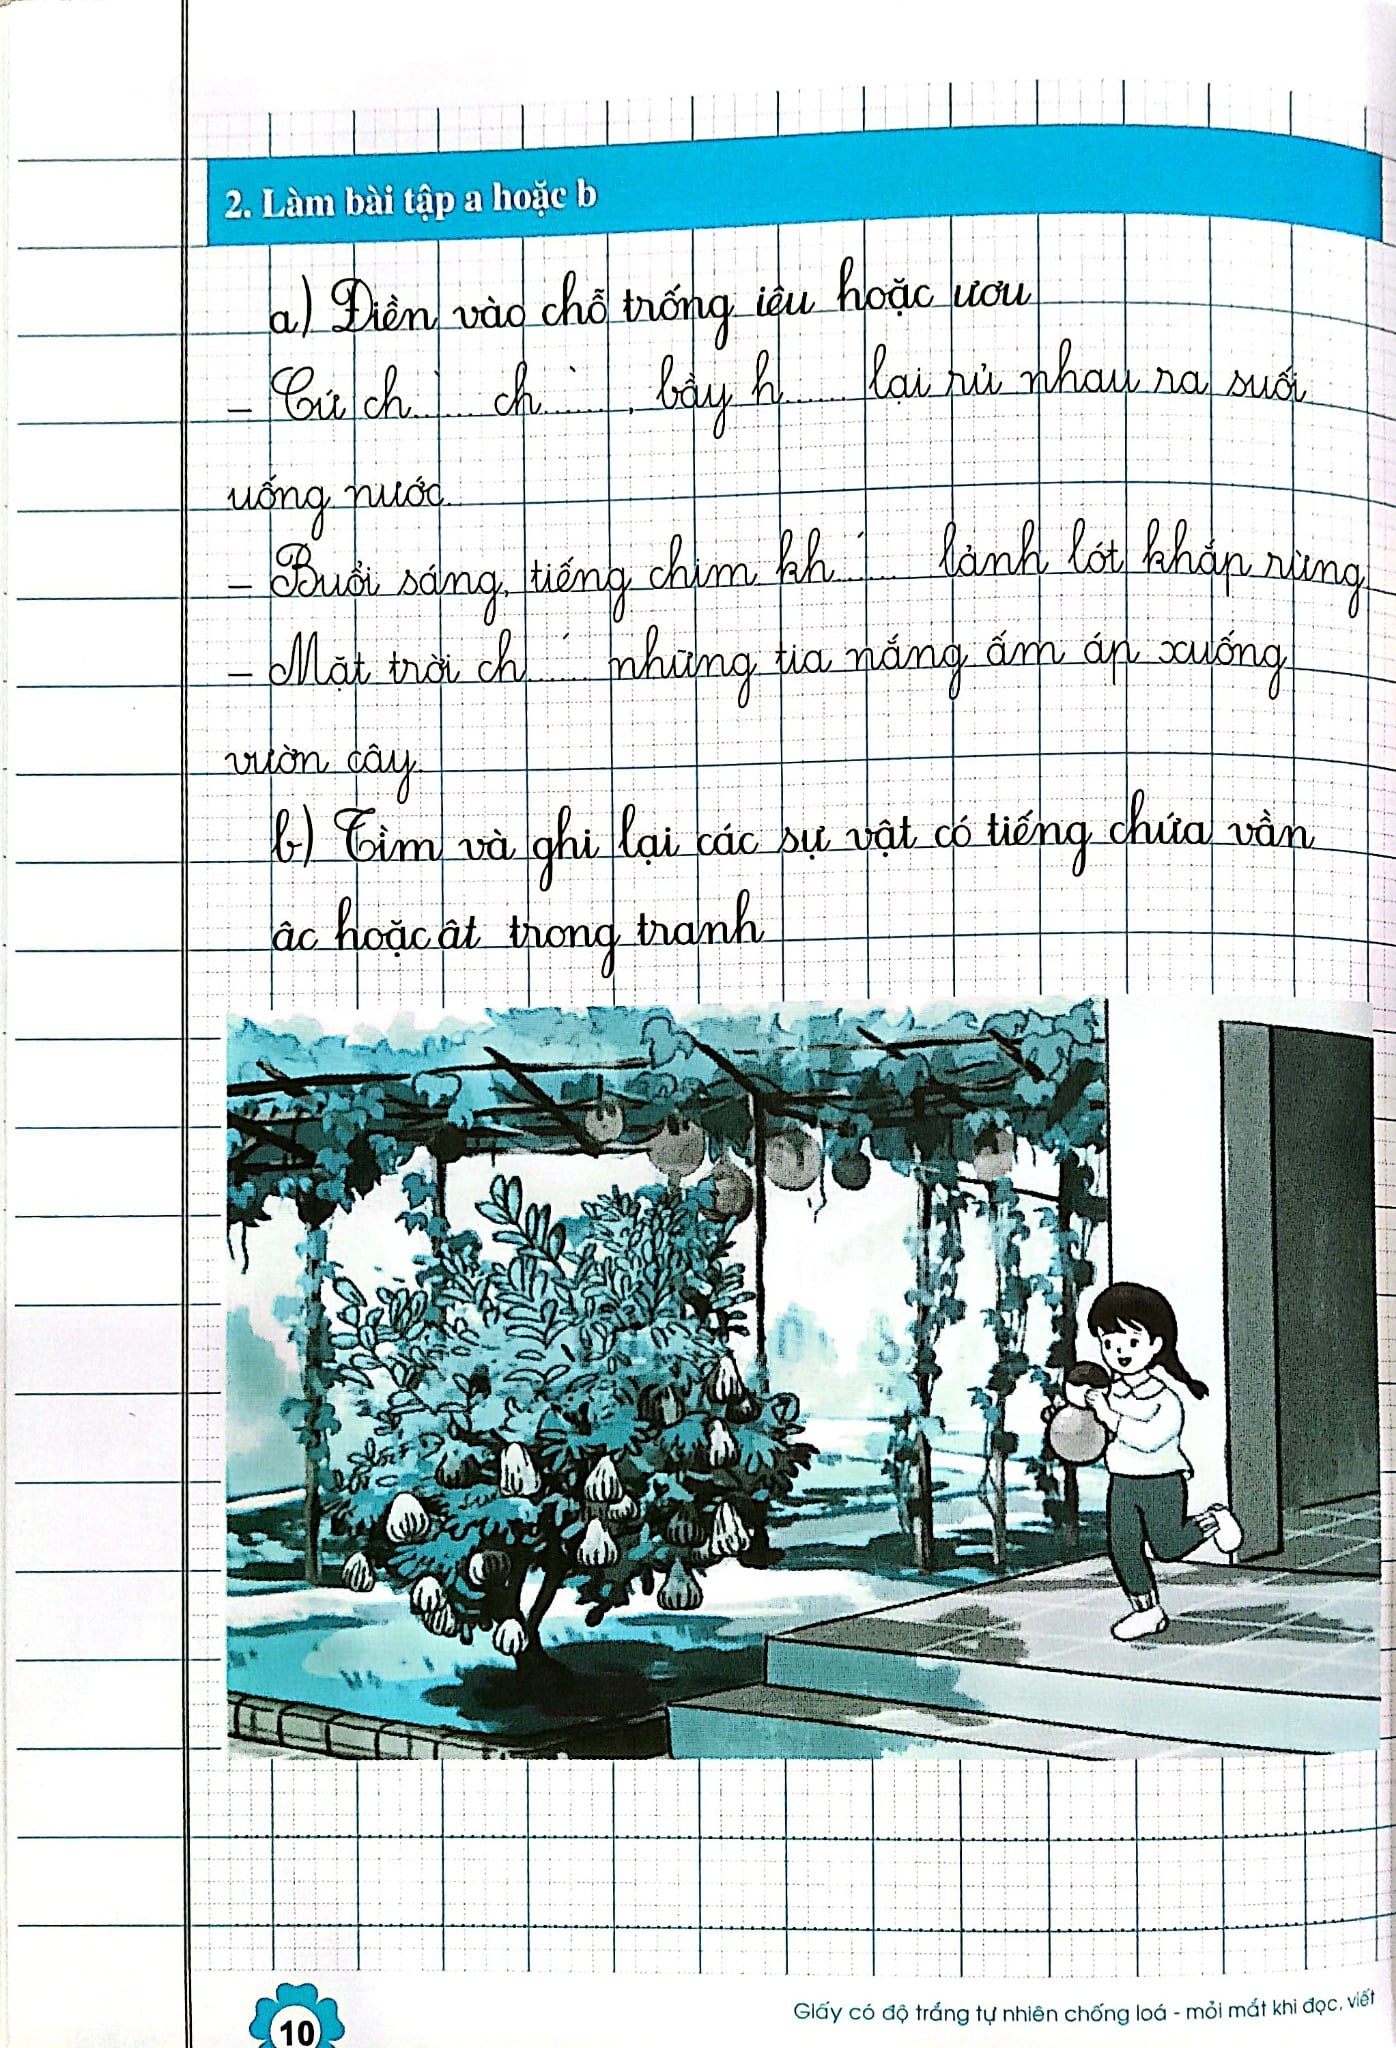 2. Làm bài tập a hoặc b
a) Điền vào chỗ trống iêu hoặc ươu
- Cứ ch..̀... ch..̀..., bầy h...... lại rủ nhau ra suối
uống nước.
- Buổi sáng, tiếng chim kh..́... lảnh lót khắp rừng
- Mặt trời ch..́... những tia nắng ấm áp xuống
vườn cây.
b) Tìm và ghi lại các sự vật có tiếng chứa vần
âc hoặc ât trong tranh
10
Giấy có độ trắng tự nhiên chống loá - mỏi mắt khi đọc, viết